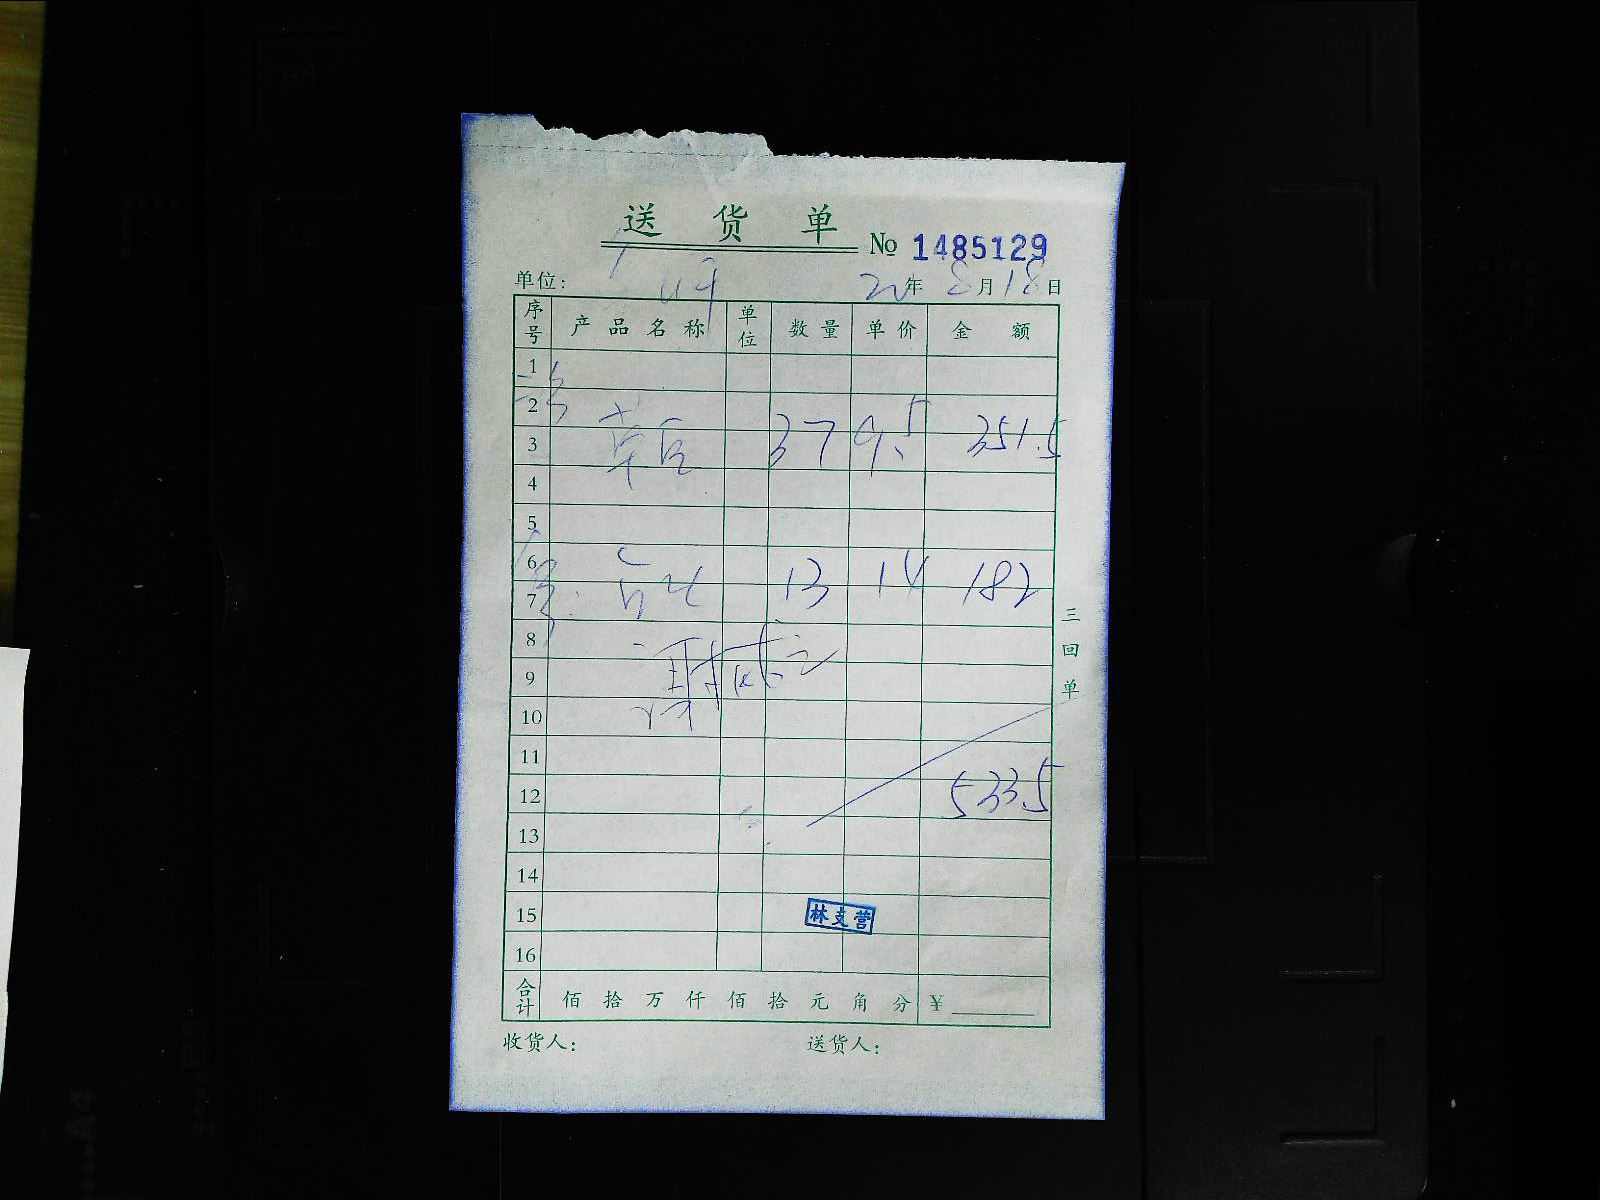 送货单
No 1485129
单位: 20年8月18日
序号 产品名称 单位 数量 单价 金额
1
2
3 37 9.5 351.5
4
5
6
7 13 14 182
8
9
10
11
12 533.5
13
14
15
16
林支营
合计 佰拾万仟佰拾元角分 ¥
收货人: 送货人:
三回单